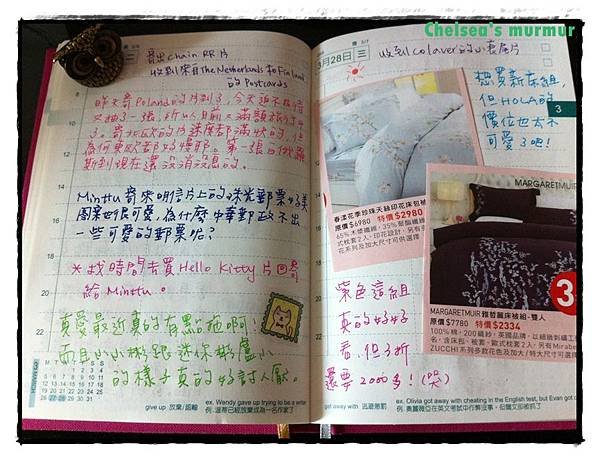 Chelsea's murmur
寄出chain RR片
收到來自The Netherlands和Finland
的Postcards
昨天寄Poland的片到了,今天迫不及待
又抽了一張,所以目前又滿額旅行中
了。寄北歐的片速度都滿快的,但
為何東歐都好慢耶。第一張白俄羅
斯到現在還沒消沒息的。
Minttu寄來明信片上的珠光郵票好美
圖案也很可愛,為什麼中華郵政不出
一些可愛的郵票呢?
*找時間去買Hello Kitty片回寄
給Minttu。
真愛最近真的有點拖啊
而且小小彬跟迷你彬
的樣子真的好討人厭。
give up 放棄/認輸
ex. Wendy gave up trying to be a writer
例. 溫蒂已經放棄成為一名作家了
3月28日 三
收到Colaver的小卡片
想買新床組,
但HOLA的
價位也太不
可愛了吧!
3
春漾花季珍珠天絲印花床包被
原價$6980 特價$2980
MARGARETMUIR
MARGARETMUIR 雅哲麗床被組-雙人
原價$7780 特價$2334
紫色這組
真的好好
看,但3折
還要2000多!(哭)
got away with 逃避懲罰
ex. Olivia got away with cheating in the English test, but Evan got c
例. 奧麗薇亞在英文考試中作弊沒事,但伊文卻被抓了